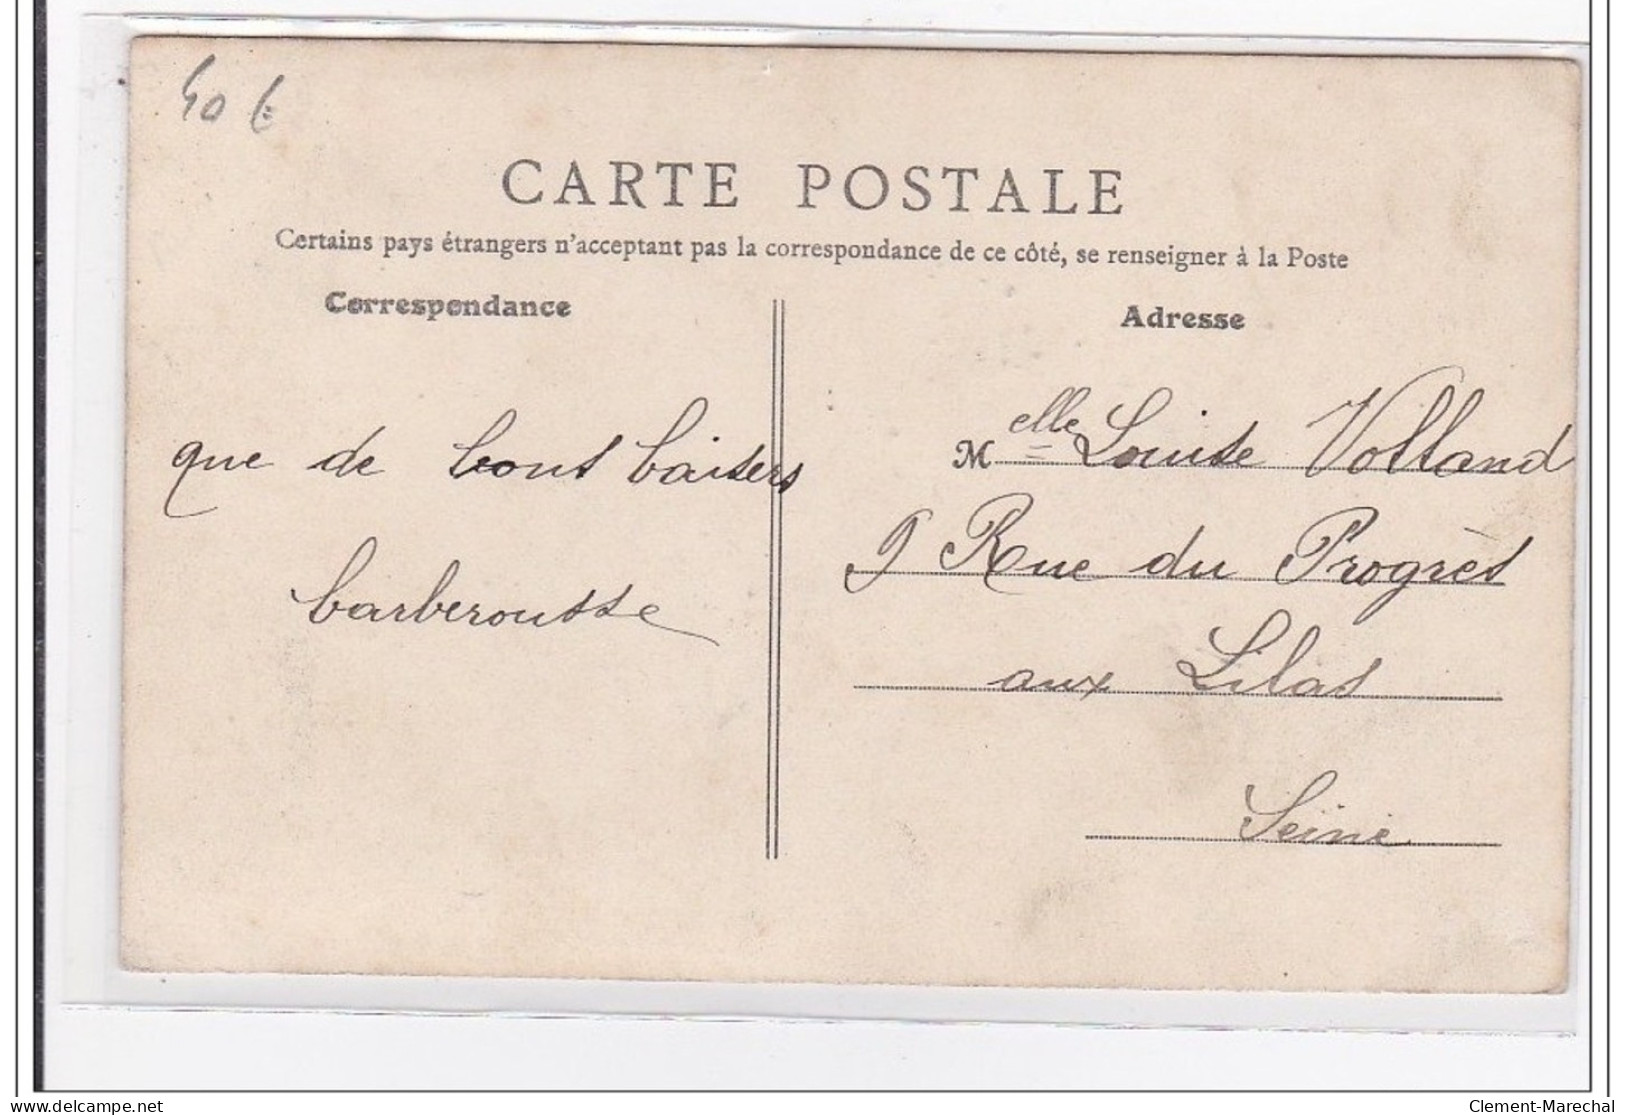 40 €
CARTE POSTALE
Certains pays étrangers n'acceptant pas la correspondance de ce côté, se renseigner à la Poste
Correspondance
que de bons baisers
barberousse
Adresse
Melle Louise Volland
9 Rue du Progrès
aux Lilas
Seine
delcampe.net
Clement-Marechal